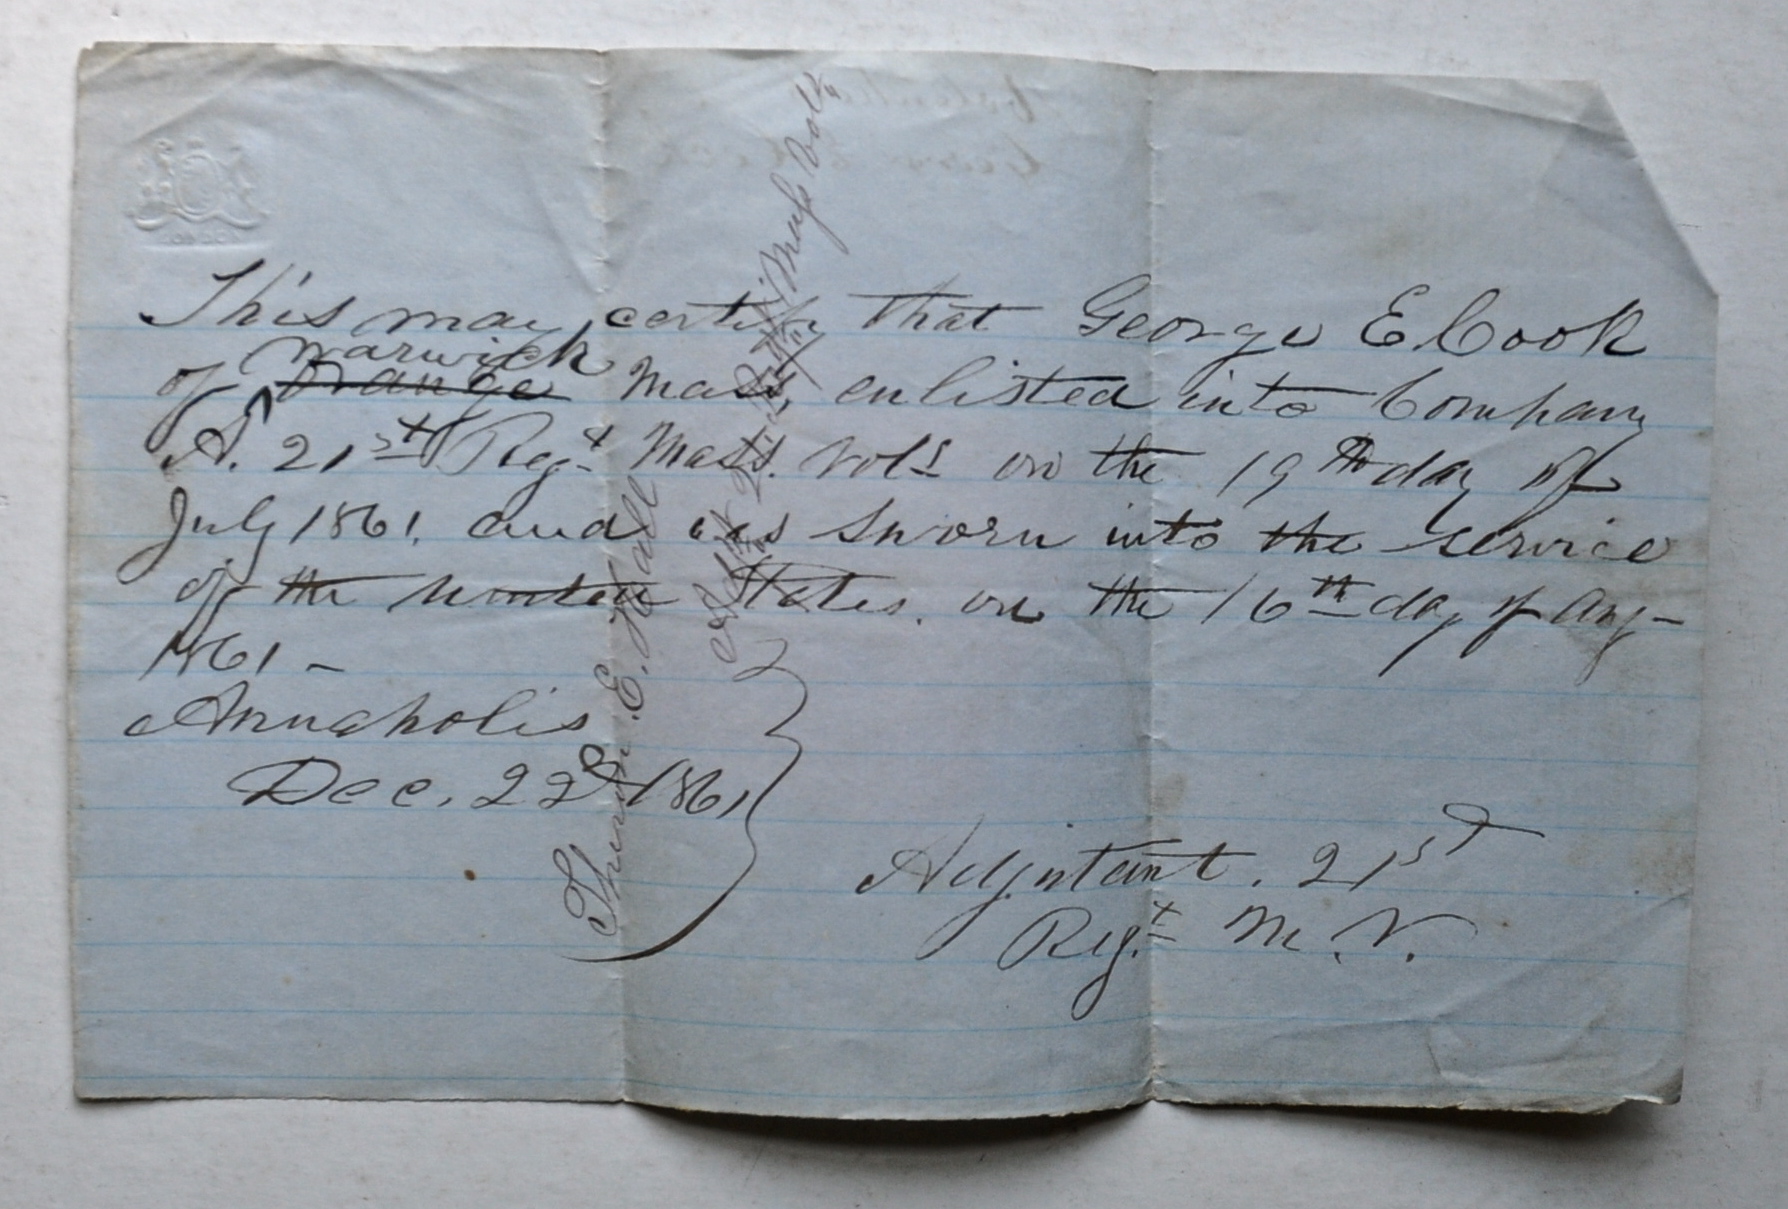 This may certify that George E. Cook
Warwick
of Orange Mass, enlisted into Company
A. 21st Regt Mass. Vols on the 19th day of
July 1861, and was sworn into the service
of the United States. on the 16th day of Aug-
1861-
Annapolis
Dec. 22d 1861
Adjutant. 21st
Regt M. V.
E. Hall
Adjt 21st Regt Mass Vols